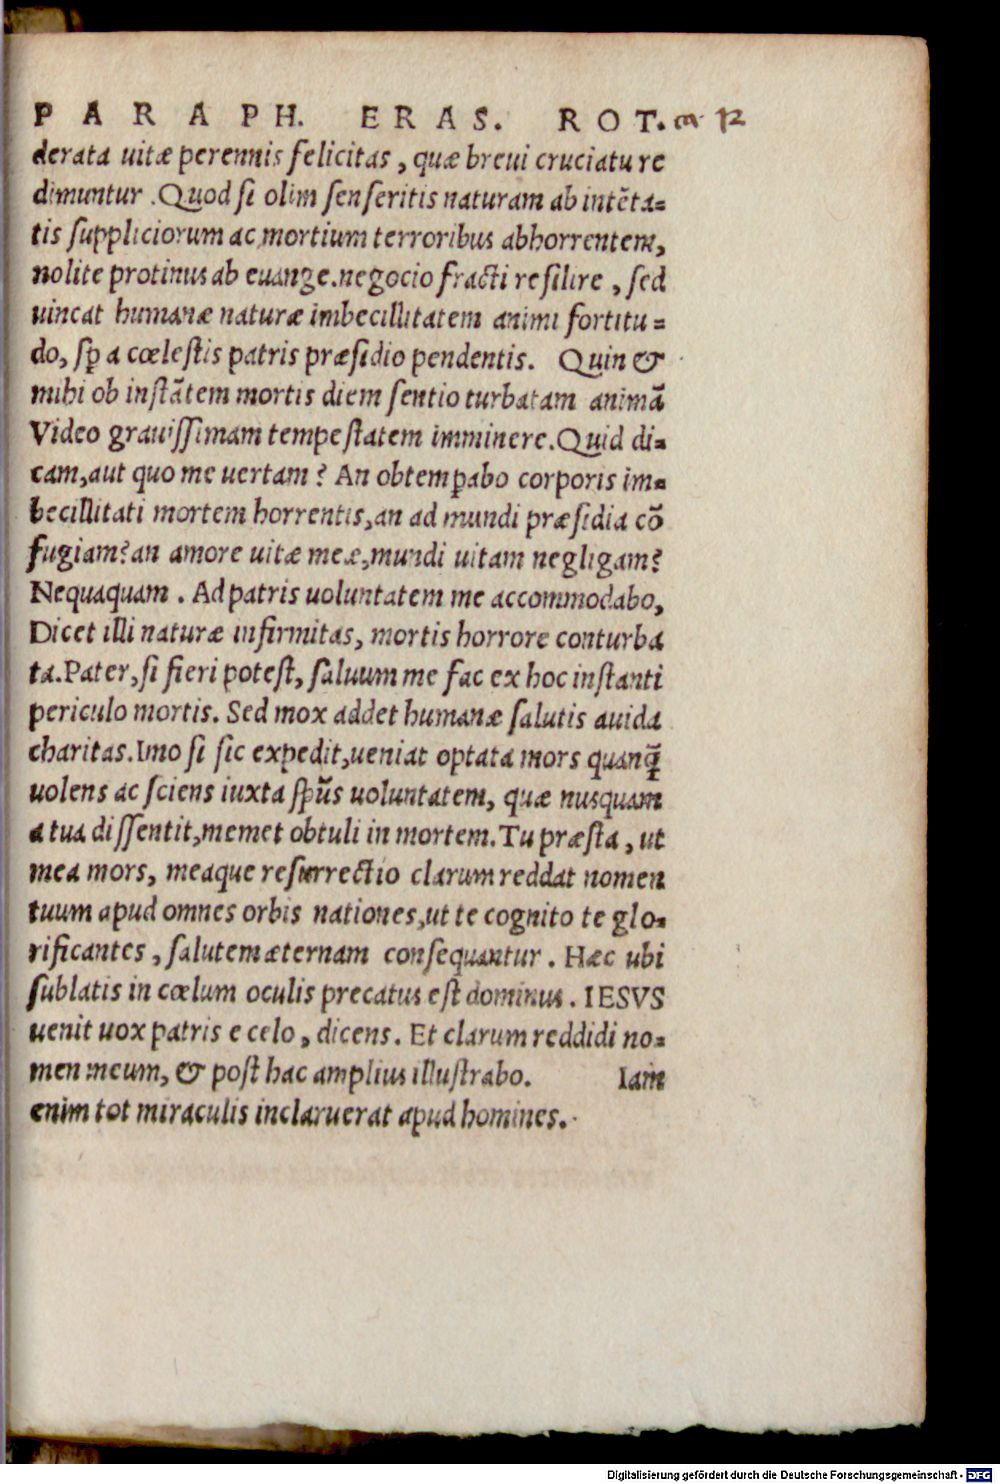 PARAPH. ERAS. ROT. m 12
derata uitæ perennis felicitas, quæ breui cruciatu re
dimuntur. Quod si olim senseritis naturam ab intẽta=
tis suppliciorum ac mortium terroribus abhorrentem,
nolite protinus ab euange.negocio fracti resilire, sed
uincat humanæ naturæ imbecillitatem animi fortitu=
do, sꝑ a cœlestis patris præsidio pendentis. Quin &
mihi ob instãtem mortis diem sentio turbatam animã
Video grauissimam tempestatem imminere.Quid di=
cam,aut quo me uertam? An obtemꝑabo corporis im=
becillitati mortem horrentis,an ad mundi præsidia cõ
fugiam?an amore uitæ meæ,mundi uitam negligam?
Nequaquam. Ad patris uoluntatem me accommodabo,
Dicet illi naturæ infirmitas, mortis horrore conturba
ta.Pater,si fieri potest, saluum me fac ex hoc instanti
periculo mortis. Sed mox addet humanæ salutis auida
charitas.Imo si sic expedit,ueniat optata mors quanꝗ̃
uolens ac sciens iuxta spũs uoluntatem, quæ nusquam
a tua dissentit,memet obtuli in mortem.Tu præsta, ut
mea mors, meaque resurrectio clarum reddat nomen
tuum apud omnes orbis nationes,ut te cognito te glo=
rificantes, salutem æternam consequantur. Hæc ubi
sublatis in cœlum oculis precatus est dominus. IESVS
uenit uox patris e celo, dicens. Et clarum reddidi no=
men meum, & post hac amplius illustrabo. Iam
enim tot miraculis inclaruerat apud homines.
Digitalisierung gefördert durch die Deutsche Forschungsgemeinschaft - DFG